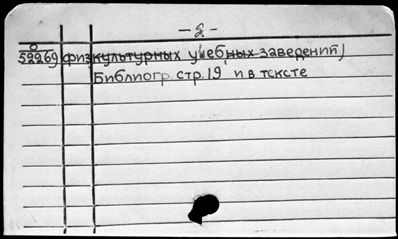 — 2 —
52269 физкультурных учебных заведений)
Библиогр. стр. 19 и в тексте